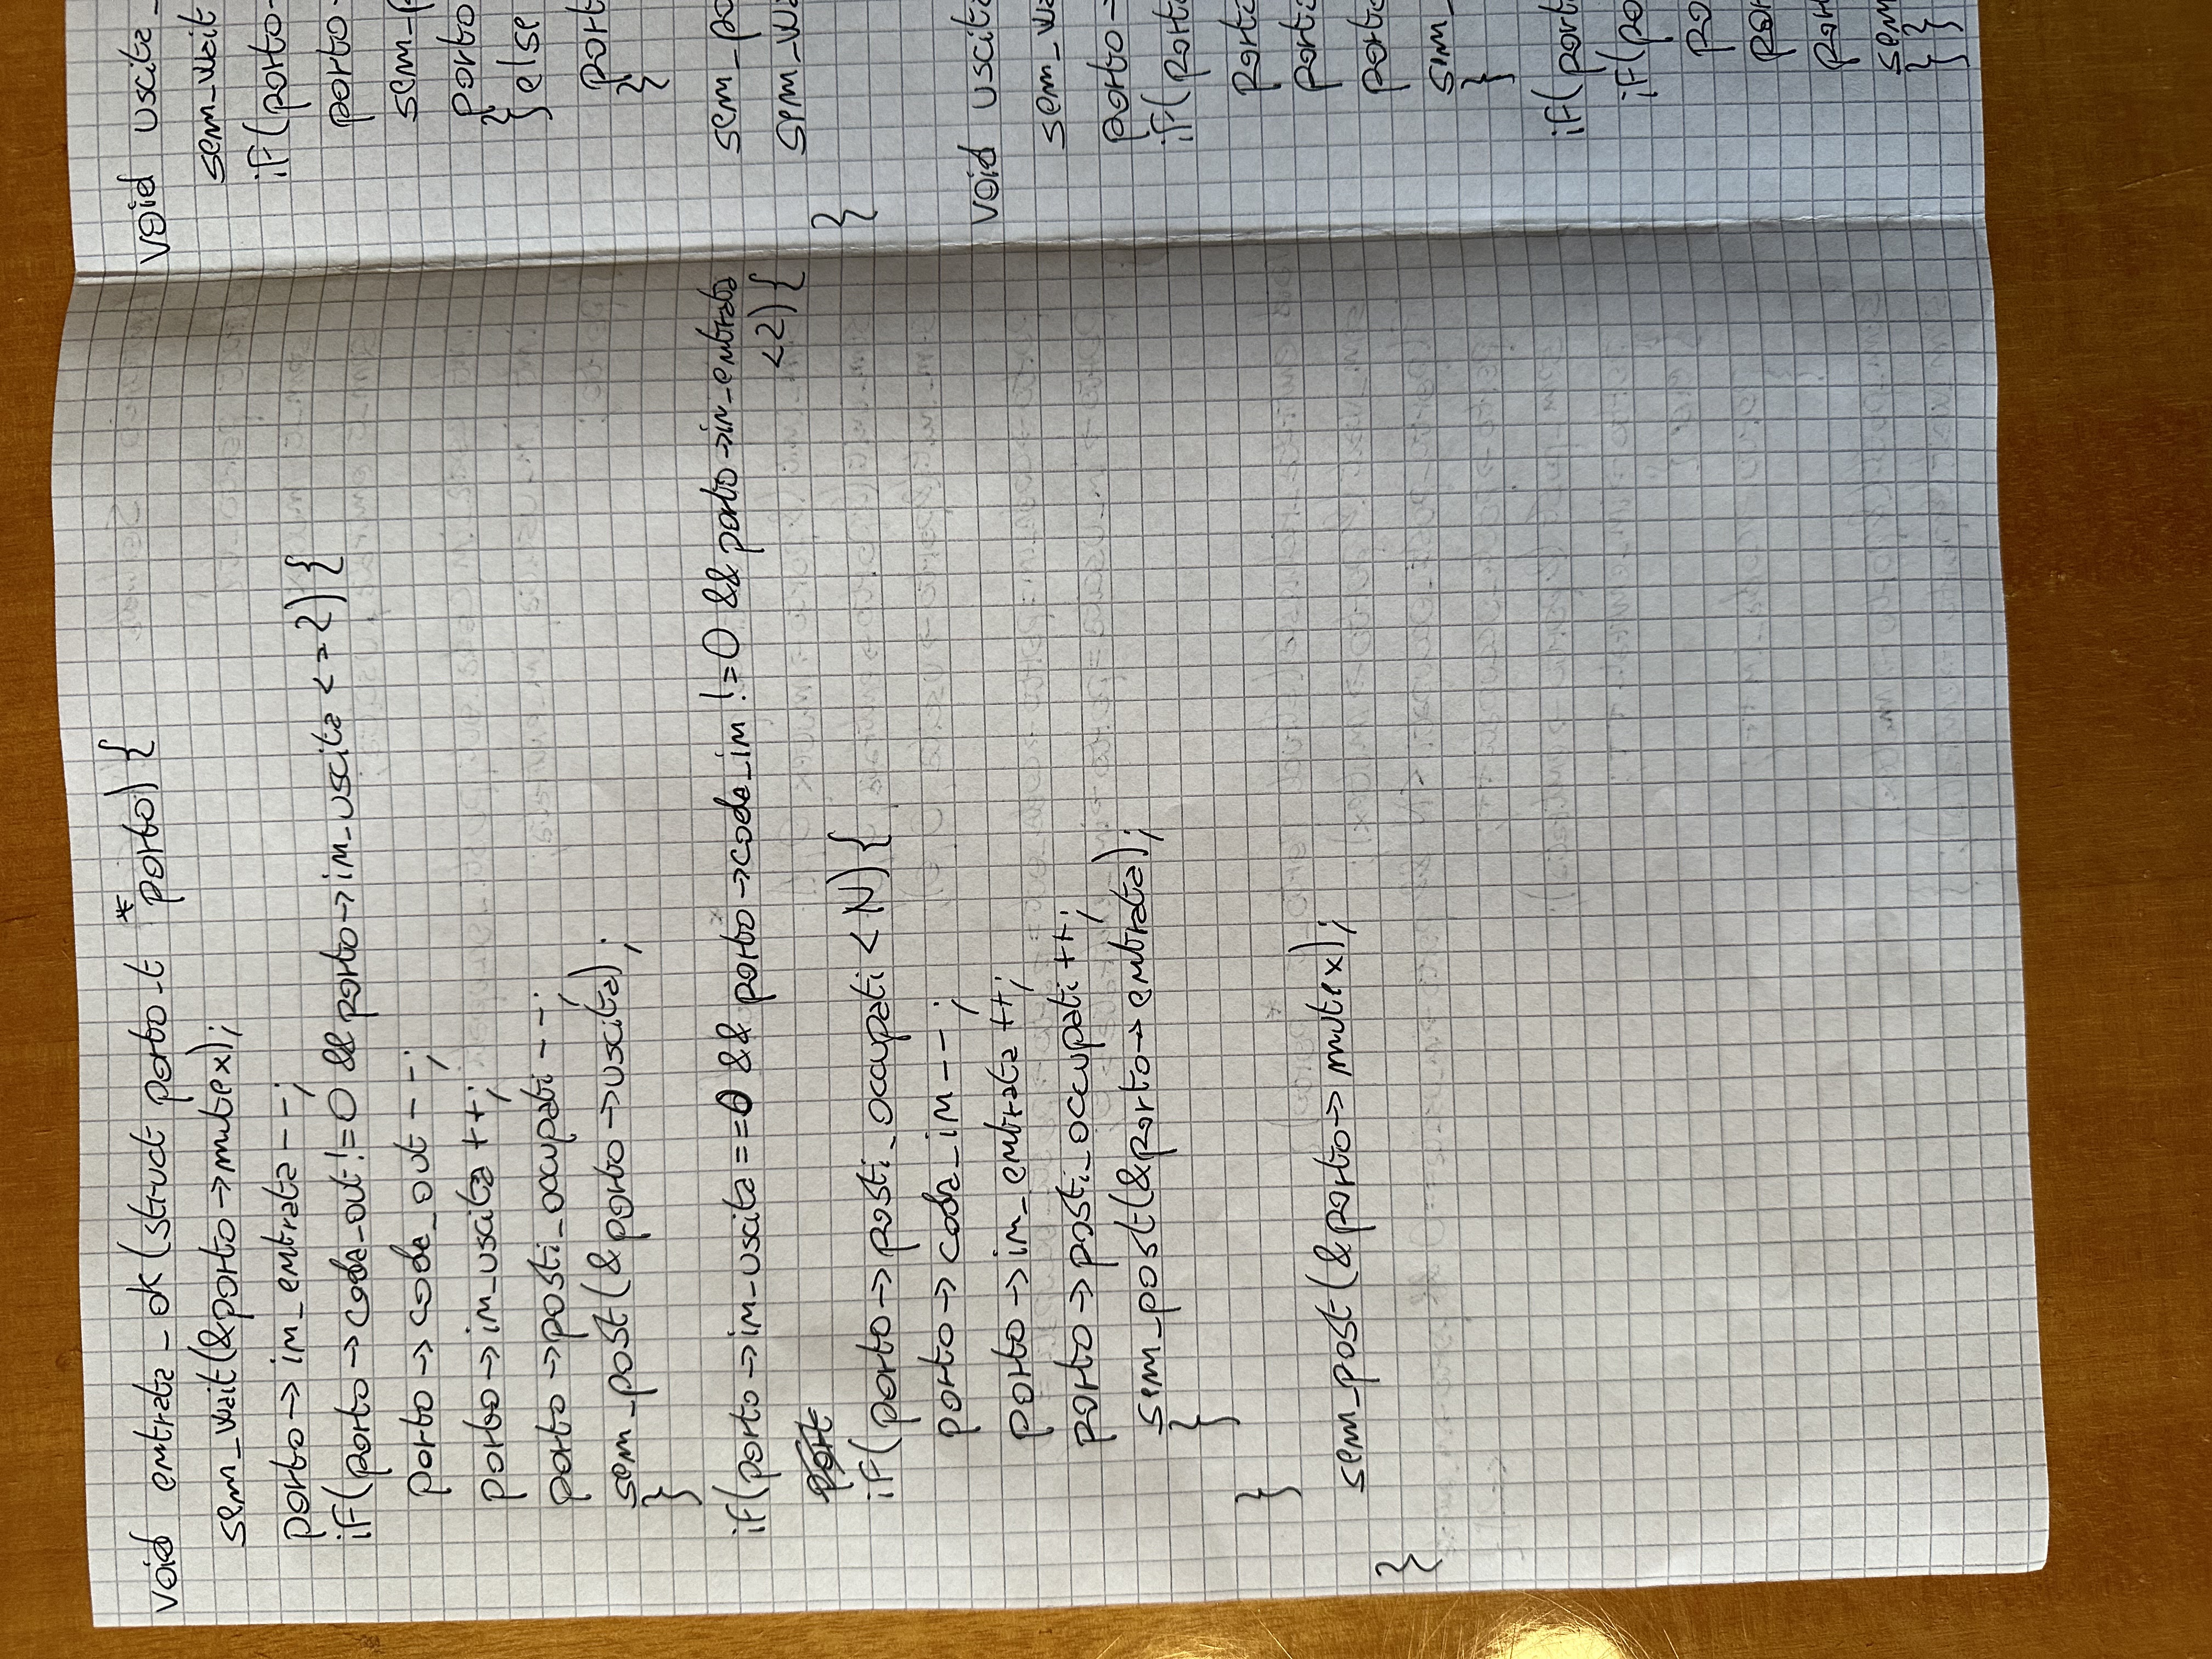 void entrata_ok(struct porto_t *porto) {
sem_wait(&porto->mutex);
porto->in_entrata--;
if(porto->coda_out!=0 && porto->in_uscita <=2) {
porto->coda_out--;
porto->in_uscita++;
porto->posti_occupati--;
sem_post(&porto->uscita);
}
if(porto->in_uscita==0 && porto->coda_in !=0 && porto->in_entrata
<2) {
port
if(porto->posti_occupati < N) {
porto->coda_in--;
porto->in_entrata++;
porto->posti_occupati++;
sem_post(&porto->entrata);
}
}
sem_post(&porto->mutex);
}
void uscita_
sem_wait
if(porto-
porto-
sem_p
porto
}else
port
}
sem_po
sem_wa
}
void uscita
sem_wa
porto-
if(port
porto
porto
porto
sem_
}
if(port
if(po
po
por
port
sem
}}